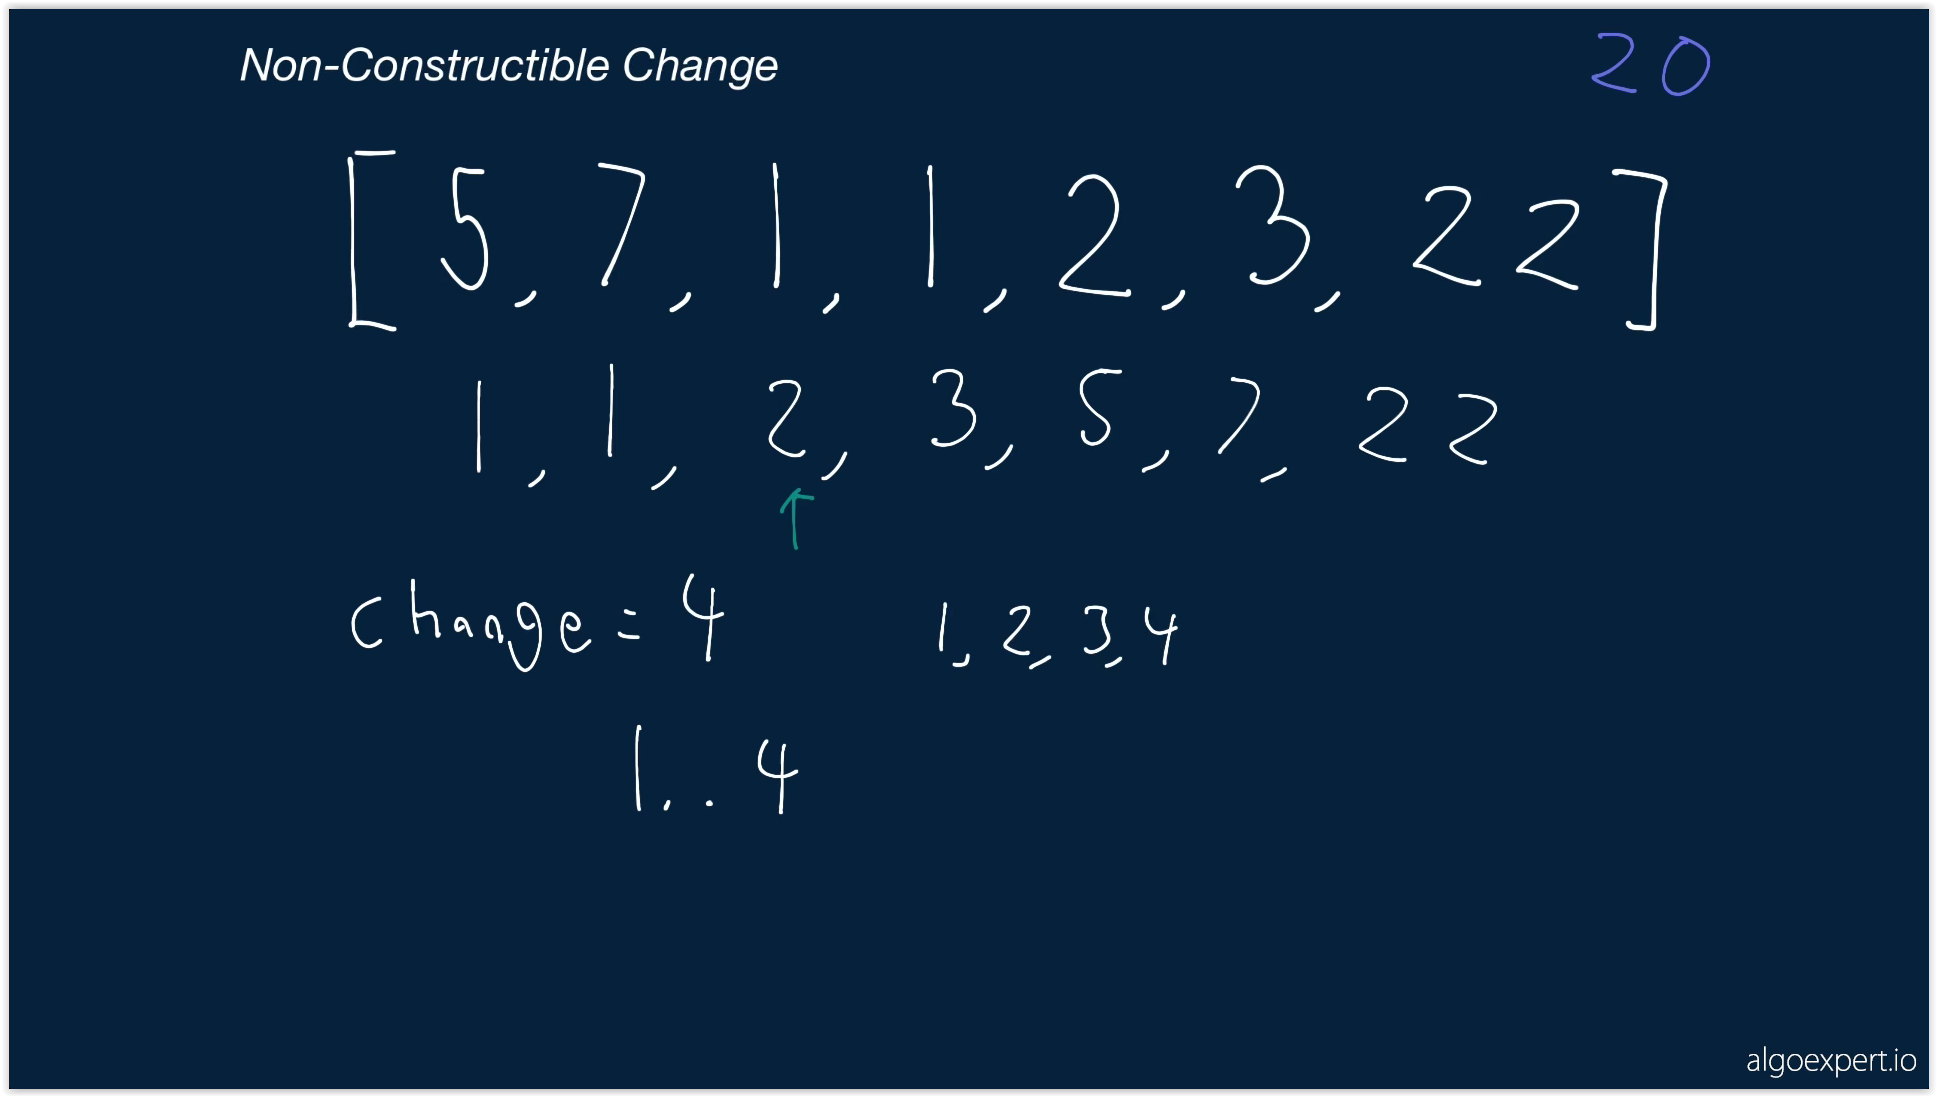 Non-Constructible Change
20
[5, 7, 1, 1, 2, 3, 22]
1, 1, 2, 3, 5, 7, 22
change = 4
1, 2, 3, 4
1.. 4
algoexpert.io